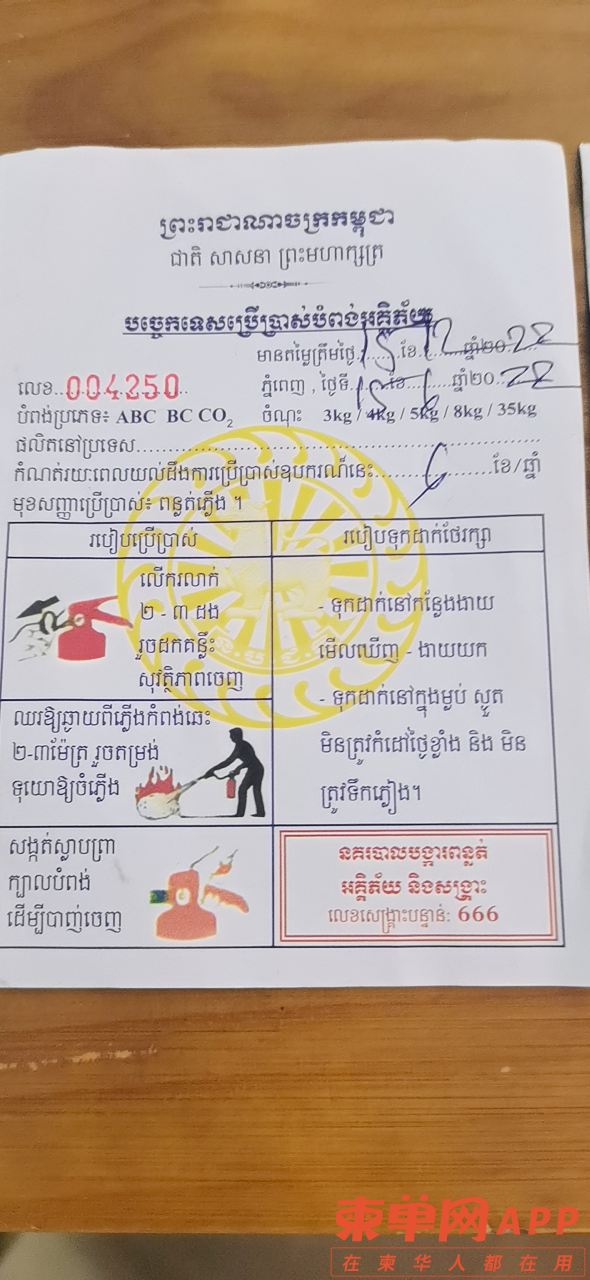 ព្រះរាជាណាចក្រកម្ពុជា
ជាតិ សាសនា ព្រះមហាក្សត្រ
បច្ចេកទេសប្រើប្រាស់បំពង់អគ្គិភ័យ
មានតម្លៃត្រឹមថ្ងៃ 15 ខែ 12 ឆ្នាំ២០ 22
លេខ 004250
ភ្នំពេញ , ថ្ងៃទី 15 ខែ ឆ្នាំ២០ 22
បំពង់ប្រភេទ៖ ABC BC CO2 ចំណុះ 3kg / 4kg / 5kg / 8kg / 35kg
ផលិតនៅប្រទេស
កំណត់រយៈពេលយល់ដឹងការប្រើប្រាស់ឧបករណ៍នេះ 6 ខែ/ឆ្នាំ
មុខសញ្ញាប្រើប្រាស់៖ ពន្លត់ភ្លើង ។
របៀបប្រើប្រាស់
លើករលាក់
២ - ៣ ដង
រួចដកគន្លឹះ
សុវត្ថិភាពចេញ
ឈរឱ្យឆ្ងាយពីភ្លើងកំពង់ឆេះ
២-៣ម៉ែត្រ រួចតម្រង់
ទុយោឱ្យចំភ្លើង
សង្កត់ស្លាបព្រា
ក្បាលបំពង់
ដើម្បីបាញ់ចេញ
របៀបទុកដាក់ថែរក្សា
- ទុកដាក់នៅកន្លែងងាយ
មើលឃើញ - ងាយយក
- ទុកដាក់នៅក្នុងម្លប់ ស្ងួត
មិនត្រូវកំដៅថ្ងៃខ្លាំង និង មិន
ត្រូវទឹកភ្លៀង។
នគរបាលបង្ការពន្លត់
អគ្គិភ័យ និងសង្គ្រោះ
លេខសង្គ្រោះបន្ទាន់: 666
柬单网APP
在柬华人都在用